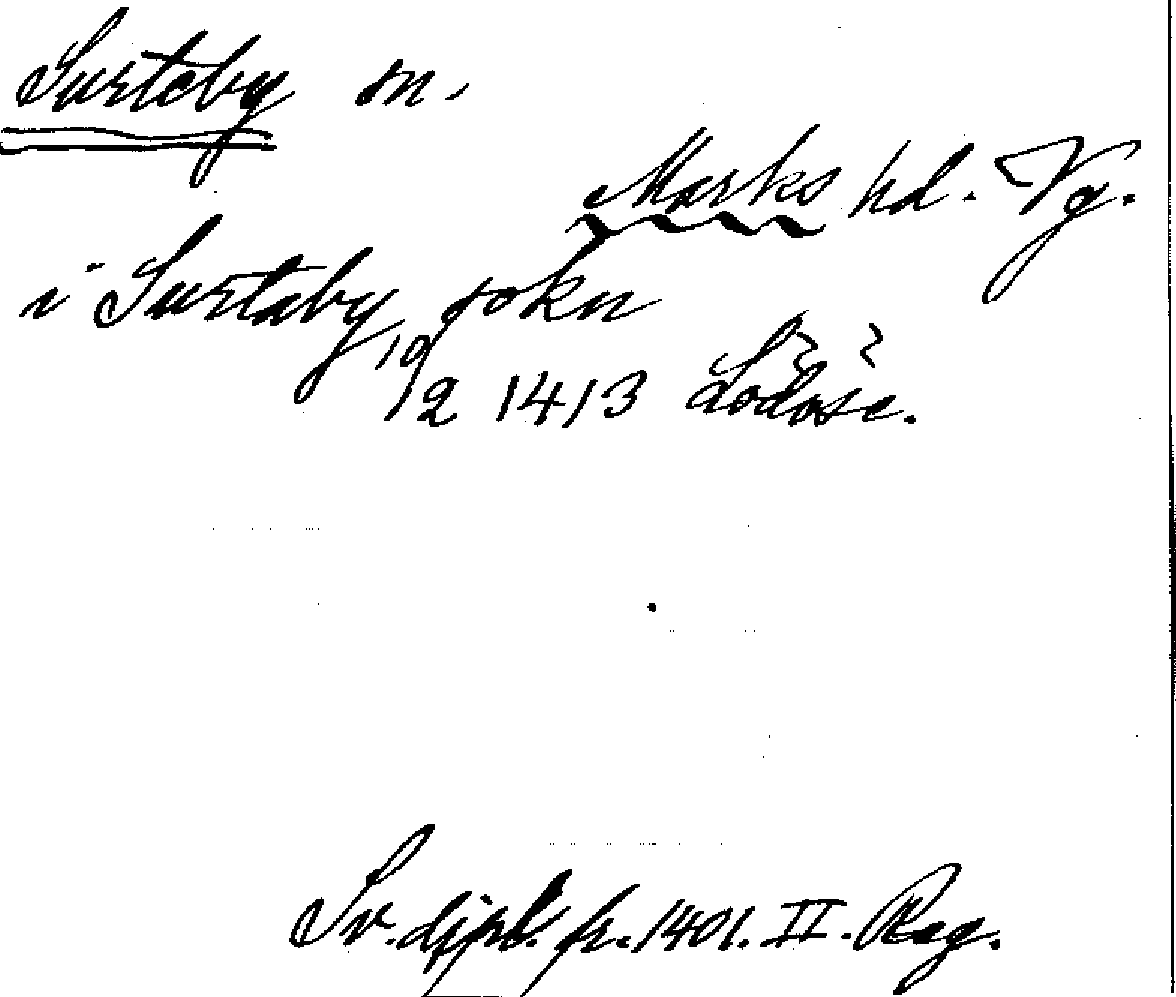 Surteby sn.
Marks hd. Vg.
i Surtaby sokn
19/2 1413 Lödöse.
Sv. dipl. fr. 1401. II. Reg.